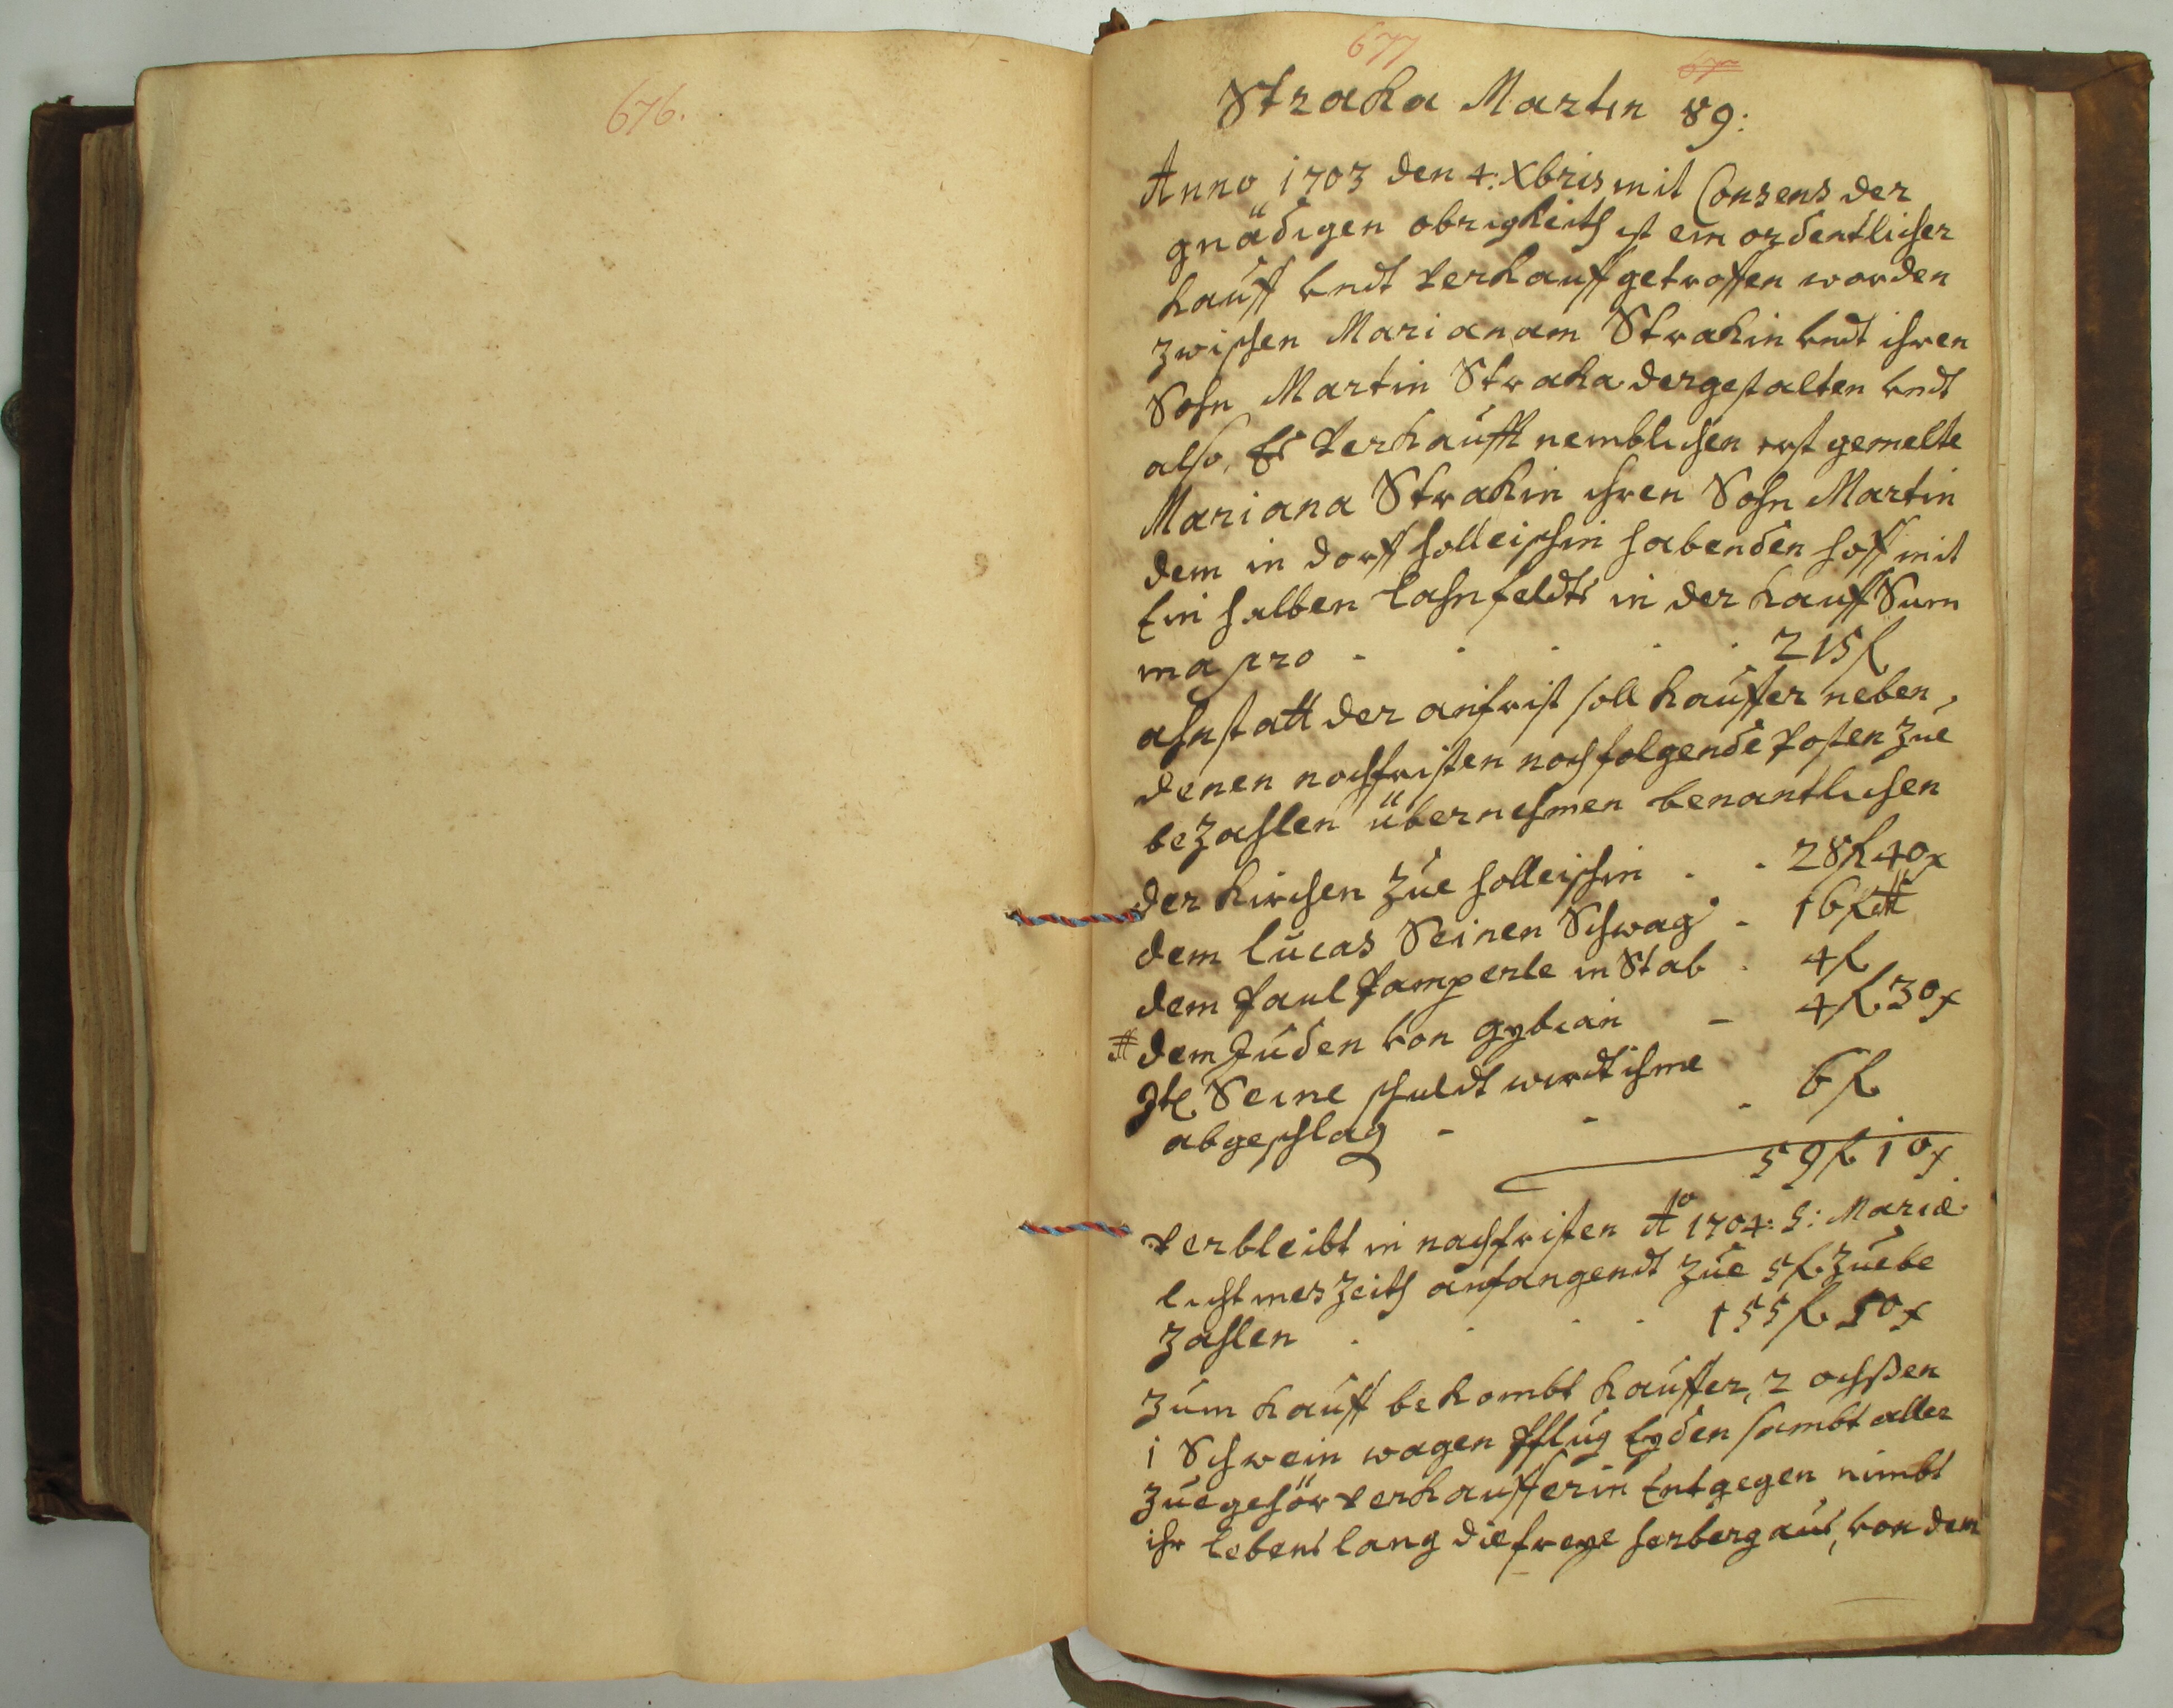 676.
677
Straka Martin 89:
Anno 1703 den 4: Xbris mit Consens der
gnädigen obrigkeith ist ein ordentlicher
kauff vndt verkauff getroffen worden
zwischen Marianam Strakin vndt ihren
Sohn Martin Straka dergestalten vndt
also, Es verkaufft nemblichen erst gemelte
Mariana Strakin ihren Sohn Martin
dem in dorff holleischin habenden hoff mit
Ein halben lahn feldts in der kauff Sum
ma pro - . . . . 215 f.
ahnstatt der anfrist soll kauffer neben,
denen nachfristen nochfolgende posten zue
bezahlen übernehmen benantlichen
der kirchen zue holleischin . . 28 f. 40 x
dem lucas Seinen Schwag. - 16 f.
dem Paul Pamperle in Stab . 4 f.
dem Juden von gybian - 4 f. 30 x
Itl. Seine schuldt wirdt ihme
abgeschlag - - . 6 f.
59 f. 10 x
verbleibt in nachfristen Ao 1704: S: Mariæ
lichtmes Zeith anfangendt zue 5 f. zue be
zahlen . . . . 155 f. 50 x
zum kauff bekombt kauffer, 2 ochßen
1 Schwein wagen Pflug Eyden sambt aller
zuegehör verkaufferin Entgegen nimbt
ihr lebens lang die freye herberg aus, von dem